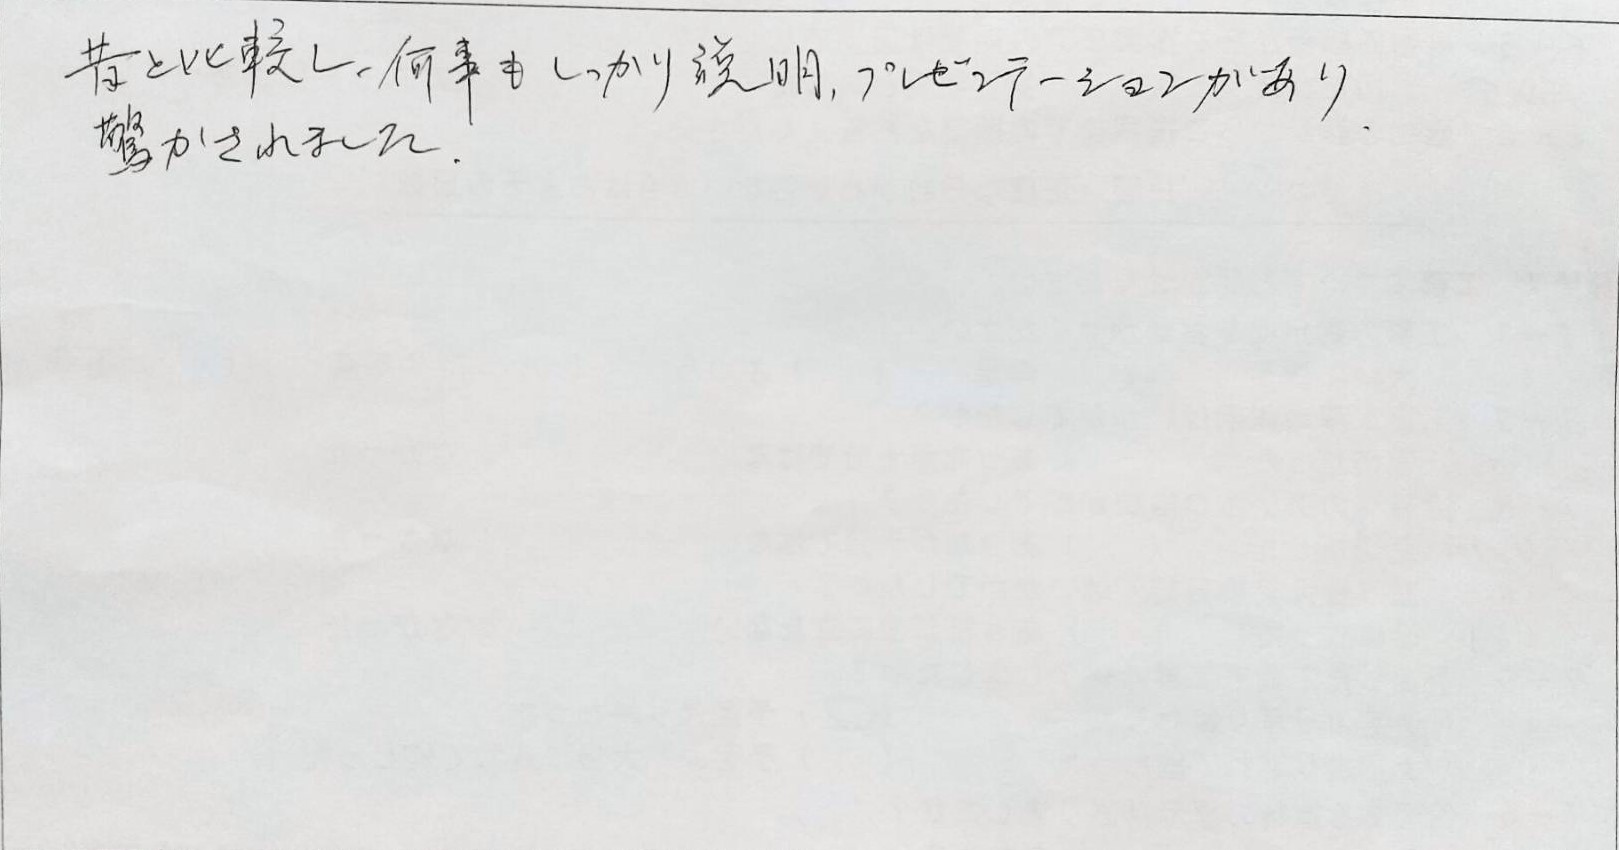 昔と比較し、何事もしっかり説明、プレゼンテーションがあり、
驚かされました。